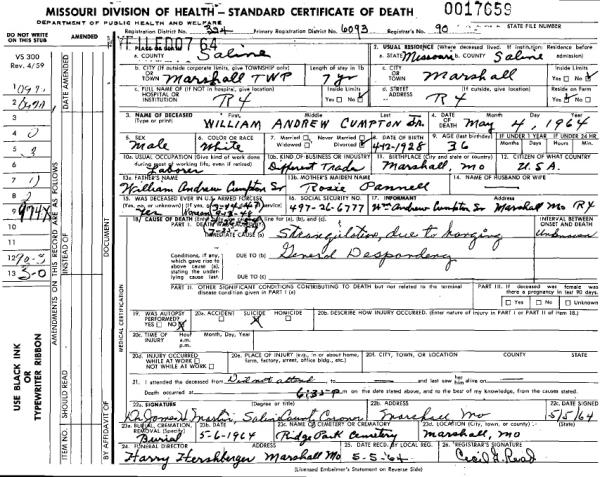 MISSOURI DIVISION OF HEALTH — STANDARD CERTIFICATE OF DEATH 0017659
DEPARTMENT OF PUBLIC HEALTH AND WELFARE
Registration District No. 324 Primary Registration District No. 6093 Registrar's No. 90 STATE FILE NUMBER
DO NOT WRITE ON THIS STUB
AMENDED
VS 300
Rev. 4/59
1. PLACE OF DEATH
a. COUNTY Saline
2. USUAL RESIDENCE (Where deceased lived. If institution: Residence before admission)
a. STATE Missouri b. COUNTY Saline
b. CITY (If outside corporate limits, give TOWNSHIP only) OR TOWN Marshall TWP
Length of stay in 1b 7 yr
c. CITY OR TOWN Marshall
Inside Limits Yes No
c. FULL NAME OF (If NOT in hospital, give location) HOSPITAL OR INSTITUTION R4
Inside Limits Yes No
d. STREET ADDRESS R4
Reside on Farm Yes No
3. NAME OF DECEASED (Type or print) First Middle Last
WILLIAM ANDREW CUMPTON Jr.
4. DATE OF DEATH Month Day Year
May 4, 1964
5. SEX Male
6. COLOR OR RACE White
7. Married Never Married Widowed Divorced
8. DATE OF BIRTH 4-12-1928
9. AGE (last birthday) 36
IF UNDER 1 YEAR Months Days
IF UNDER 24 HR. Hours Min.
10a. USUAL OCCUPATION (Give kind of work done during most of working life, even if retired) Laborer
10b. KIND OF BUSINESS OR INDUSTRY Different Trades
11. BIRTHPLACE (City and state or country) Marshall Mo
12. CITIZEN OF WHAT COUNTRY U.S.A.
13a. FATHER'S NAME William Andrew Cumpton Sr
13b. MOTHER'S MAIDEN NAME Rosie Pannell
14. NAME OF HUSBAND OR WIFE
15. WAS DECEASED EVER IN U.S. ARMED FORCES?
16. SOCIAL SECURITY NO. 497-26-6777
17. INFORMANT Wm Andrew Cumpton Sr Marshall Mo R4
18. CAUSE OF DEATH
PART I.
IMMEDIATE CAUSE (a) Strangulation due to hanging
INTERVAL BETWEEN ONSET AND DEATH Unknown
Conditions, if any, which gave rise to above cause (a), stating the underlying cause last.
DUE TO (b) General Despondency
DUE TO (c)
PART II. OTHER SIGNIFICANT CONDITIONS CONTRIBUTING TO DEATH but not related to the terminal disease condition given in PART I (a)
PART III. If deceased was female was there a pregnancy in last 90 days. Yes No Unknown
19. WAS AUTOPSY PERFORMED? YES NO
20a. ACCIDENT SUICIDE HOMICIDE
20b. DESCRIBE HOW INJURY OCCURRED. (Enter nature of injury in PART I or PART II of item 18.)
20c. TIME OF INJURY Hour a.m. p.m. Month, Day, Year
20d. INJURY OCCURRED WHILE AT WORK NOT WHILE AT WORK
20e. PLACE OF INJURY (e.g., in or about home, farm, factory, street, office bldg., etc.)
20f. CITY, TOWN, OR LOCATION COUNTY STATE
21. I attended the deceased from Did not attend to and last saw her him alive on
Death occurred at 6:35 P m on the date stated above, and to the best of my knowledge, from the causes stated.
22a. SIGNATURE (Degree or title) Saline County Coroner
22b. ADDRESS Marshall Mo
22c. DATE SIGNED 5/5/64
23a. BURIAL, CREMATION, REMOVAL (Specify) Burial
23b. DATE 5-6-1964
23c. NAME OF CEMETERY OR CREMATORY Ridge Park Cemetery
23d. LOCATION (City, town, or county) (State) Marshall, Mo
24. FUNERAL DIRECTOR ADDRESS Harry Hershberger Marshall Mo
25. DATE RECD. BY LOCAL REG. 5-5-64
26. REGISTRAR'S SIGNATURE Cecil G. Read
(Licensed Embalmer's Statement on Reverse Side)
USE BLACK INK OR TYPEWRITER RIBBON
AMENDMENTS ON THIS RECORD ARE AS FOLLOWS
ITEM NO.
SHOULD READ
INSTEAD OF
DATE AMENDED
BY AFFIDAVIT OF
DOCUMENT
MEDICAL CERTIFICATION